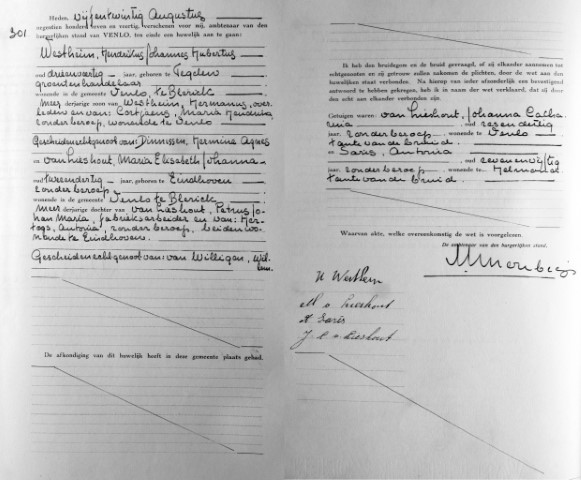 301
Heden, vijfentwintig Augustus
negentien honderd zeven en veertig, verschenen voor mij, ambtenaar van den
burgerlijken stand van VENLO, ten einde een huwelijk aan te gaan:
Westheim, Hendrikus Johannes Hubertus
oud drieenveertig jaar, geboren te Tegelen
groentenhandelaar
wonende in de gemeente Venlo, te Blerick
meerderjarige zoon van Westheim, Hermanus, over
leden en van:
zonder beroep, wonende te Venlo
Gescheiden echtgenoot van: Dinnissen, Hermina Agnes
en van Lieshout, Maria Elisabeth Johanna
oud tweeendertig jaar, geboren te Eindhoven
zonder beroep
wonende in de gemeente Venlo, te Blerick
meerderjarige dochter van van Lieshout, Petrus Jo-
han Maria, fabrieksarbeider en van: Her-
togs, Antonia, zonder beroep, beiden wo-
nende te Eindhoven.
Gescheiden echtgenoot van: van Willigen, Wil-
lem.
De afkondiging van dit huwelijk heeft in deze gemeente plaats gehad.
Ik heb den bruidegom en de bruid gevraagd, of zij elkander aannemen tot
echtgenooten en zij getrouw zullen nakomen de plichten, door de wet aan den
huwelijken staat verbonden. Na hierop van ieder afzonderlijk een bevestigend
antwoord te hebben gekregen, heb ik in naam der wet verklaard, dat zij door
den echt aan elkander verbonden zijn.
Getuigen waren: van Lieshout, Johanna Catha
rina oud zesendertig
jaar, zonder beroep wonende te Venlo
tante van de bruid
en Saris, Antonia oud zevenenvijftig
jaar, zonder beroep wonende te Helmond
tante van de bruid
Waarvan akte, welke overeenkomstig de wet is voorgelezen.
De ambtenaar van den burgerlijken stand,
H Westhem
M v Lieshout
A Saris
J C v Lieshout